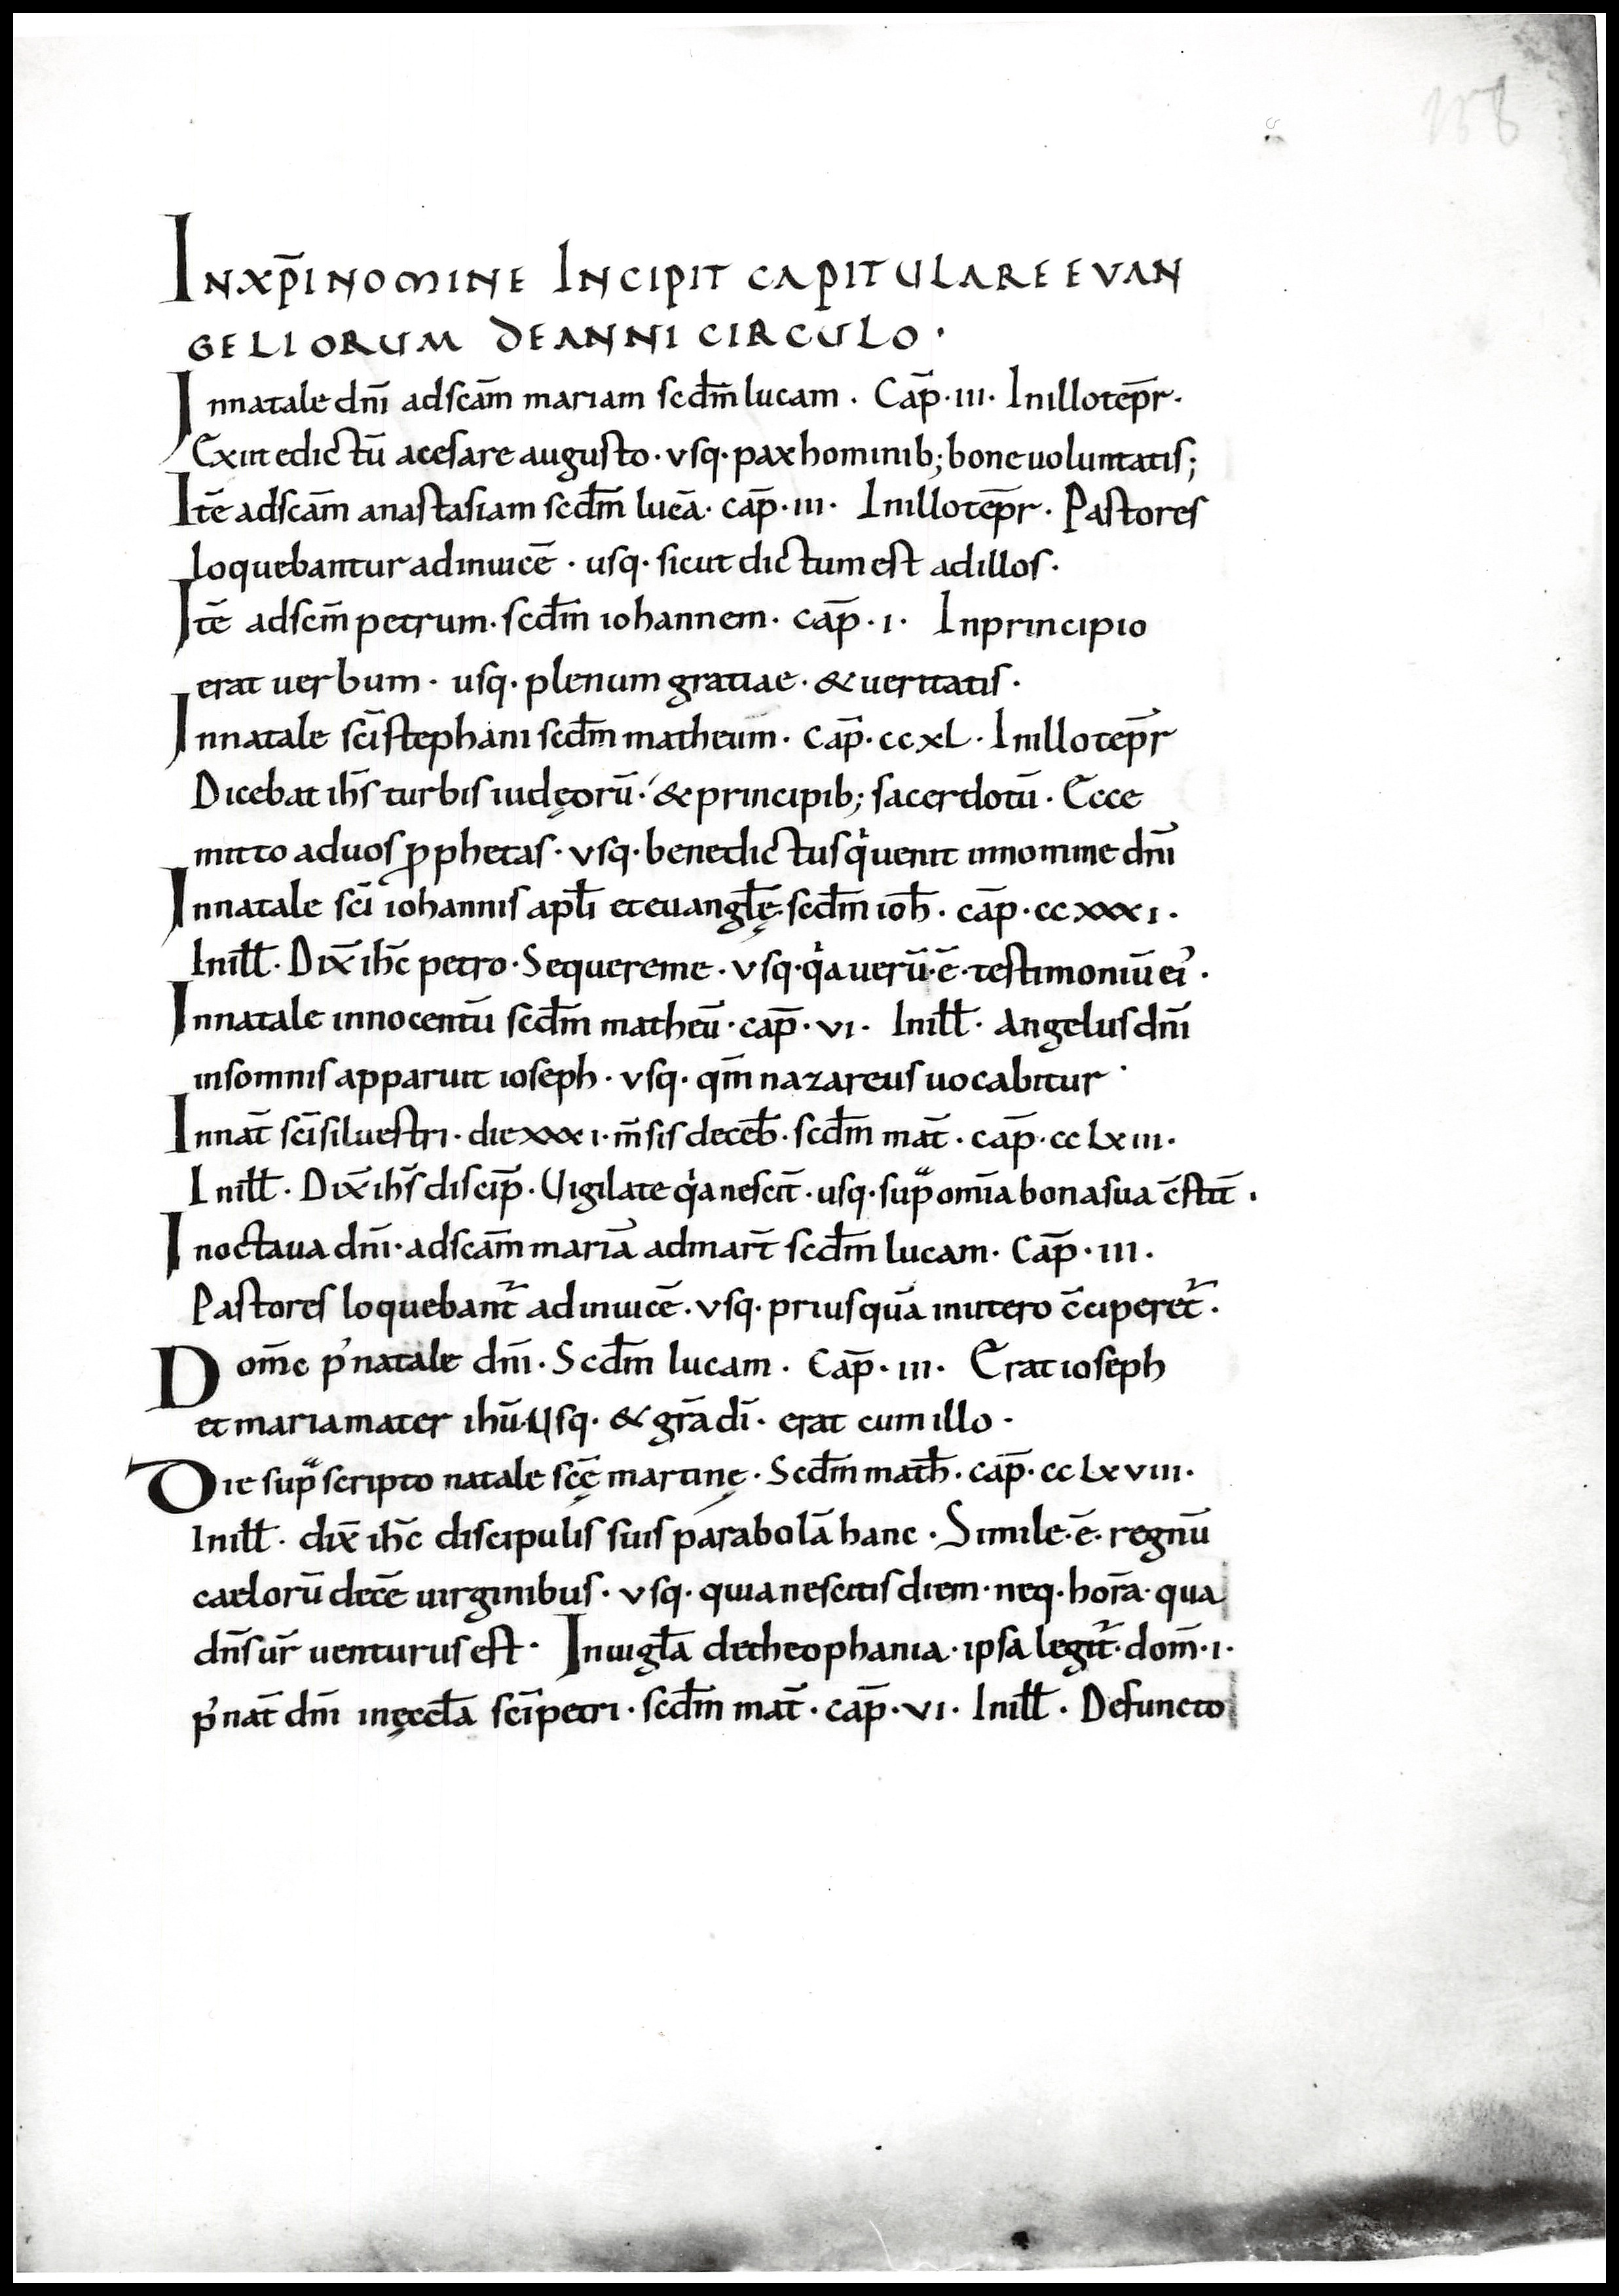 158
INXP̄I NOMINE INCIPIT CAPITULARE EVAN
GELIORUM DE ANNI CIRCULO ·
In natale dn̄i ad scām mariam scdm̄ lucam · Cap̄ · III · In illo tēpr̄ ·
Exiit edictū a cesare augusto · vsq · pax hominib; bone uoluntatis;
Itē ad scām anastasiam scdm̄ lucā · cap̄ · III · In illo tēpr̄ · Pastores
loquebantur adinuicē · usq · sicut dictum est ad illos ·
Itē ad scm̄ petrum · scdm̄ iohannem · cap̄ · I · In principio
erat uerbum · usq · plenum gratiae · & ueritatis ·
In natale sc̄i stephani scdm̄ matheum · cap̄ · ccxL · In illo tēpr̄
Dicebat ih̄s turbis iudęorū · & principib; sacerdotū · Ecce
mitto ad uos ꝓphetas · vsq · benedictus qͥ uenit in nomine dn̄i
In natale sc̄i iohannis apl̄i et euangl̄ę · scdm̄ ioh̄ · cap̄ · ccxxxI ·
In ill̄ · Dix̄ ih̄c petro · Sequere me · vsq · qͥa uerū · ē · testimoniū ei᾽ ·
In natale innocentū scdm̄ matheū · cap̄ · vI · In ill̄ · Angelus dn̄i
in somnis apparuit ioseph · vsq · qm̄ nazareus uocabitur ·
In nat̄ sc̄i siluestri · die xxxI · m̄sis decēb̄ · scdm̄ mat̄ · cap̄ · ccLxIII ·
In ill̄ · Dix̄ ih̄s discip̄ · Uigilate qͥa nescit̄ · usq · supͣ om̄ia bona sua c̄stit̄ ·
In octaua dn̄i · ad scām mariā ad mart̄ scdm̄ lucam · Cap̄ · III ·
Pastores loquebant̄ adinuicē · vsq · priusquā in utero c̄ciperet̄ ·
Dom̄c p᾽ natale dn̄i · Scdm̄ lucam · Cap̄ · III · Erat ioseph
et maria mater ih̄u · Usq · & gr̄a dī · erat cum illo ·
Die supͣ scripto natale sc̄ę martinę · Scdm̄ math̄ · cap̄ · ccLxvIII ·
In ill̄ · dix̄ ih̄c discipulis suis parabolā hanc · Simile · ē · regnū
caelorū decē uirginibus · vsq · quia nescitis diem · neq · horā · qua
dn̄s ur̄ uenturus est · In uigl̄a de theophania · ipsa legit̄ · dom̄ · I ·
p᾽ nat̄ dn̄i in ęccl̄a sc̄i petri · scdm̄ mat̄ · cap̄ · vI · In ill̄ · Defuncto